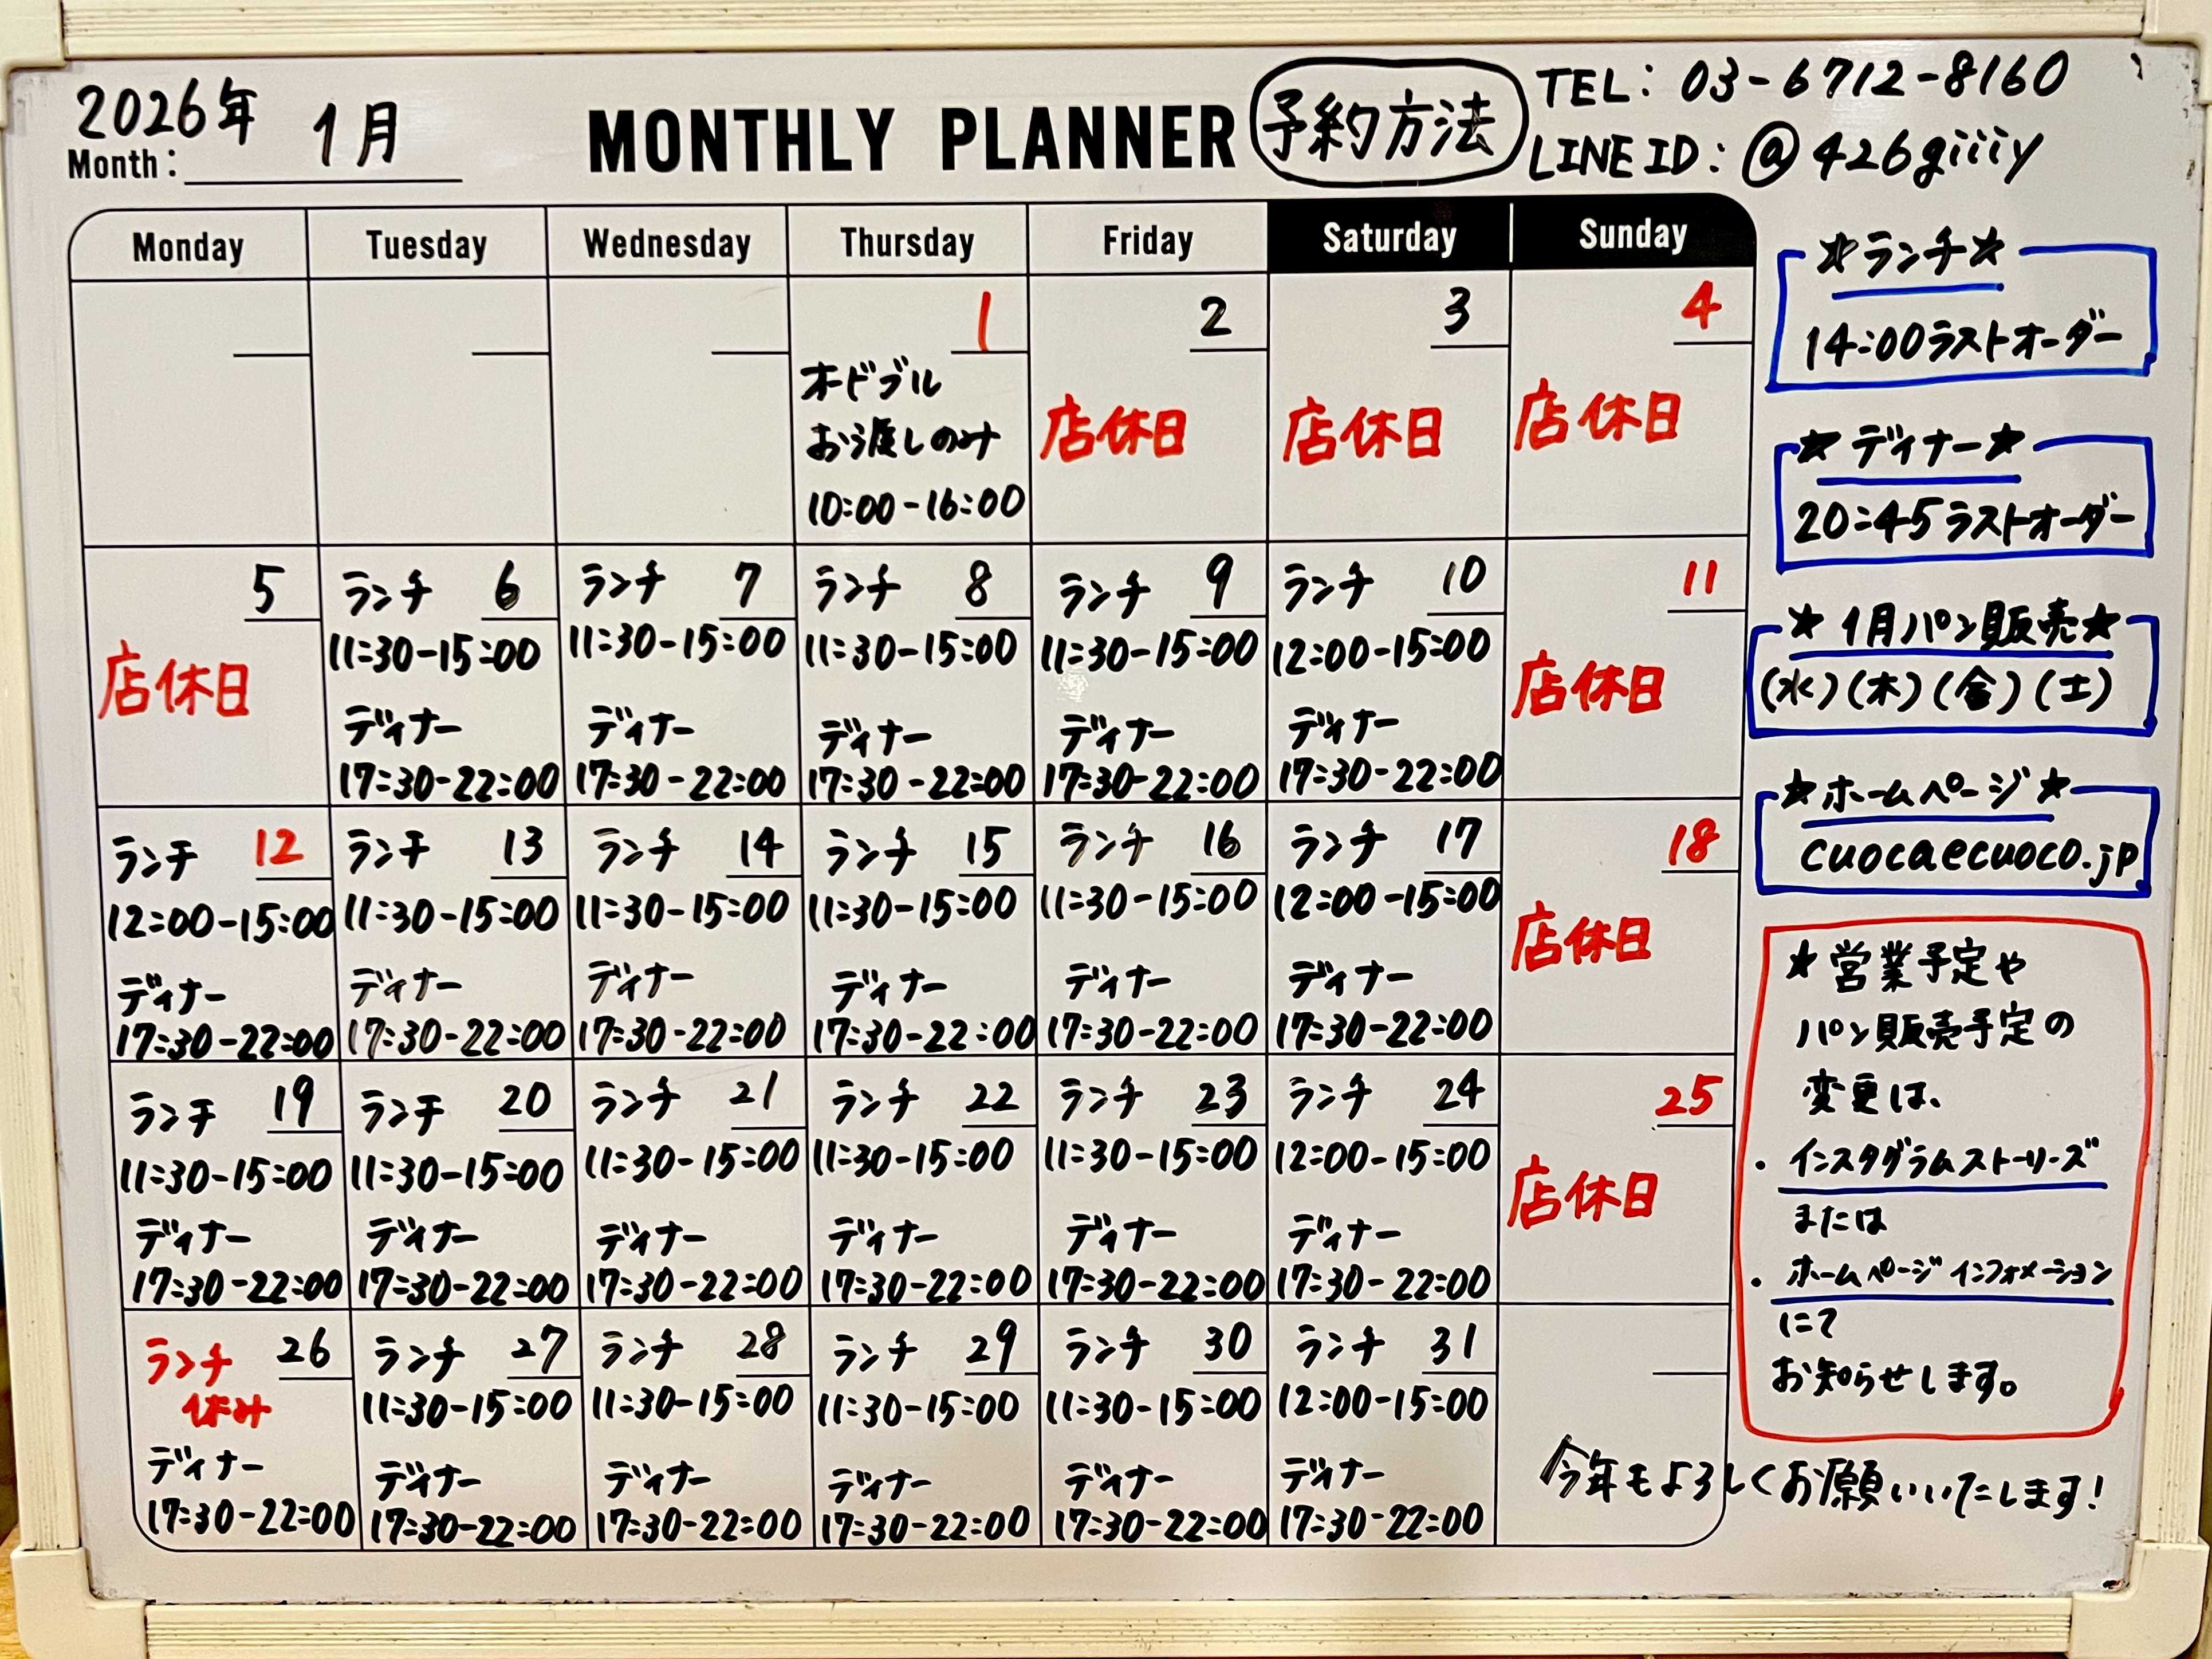 2026年 1月
Month:
MONTHLY PLANNER
予約方法
TEL: 03-6712-8160
LINE ID: @426giiiy
Monday Tuesday Wednesday Thursday Friday Saturday Sunday
1
オードブル
お渡しのみ
10:00-16:00
2
店休日
3
店休日
4
店休日
5
店休日
ランチ 6
11:30-15:00
ディナー
17:30-22:00
ランチ 7
11:30-15:00
ディナー
17:30-22:00
ランチ 8
11:30-15:00
ディナー
17:30-22:00
ランチ 9
11:30-15:00
ディナー
17:30-22:00
ランチ 10
12:00-15:00
ディナー
17:30-22:00
11
店休日
ランチ 12
12:00-15:00
ディナー
17:30-22:00
ランチ 13
11:30-15:00
ディナー
17:30-22:00
ランチ 14
11:30-15:00
ディナー
17:30-22:00
ランチ 15
11:30-15:00
ディナー
17:30-22:00
ランチ 16
11:30-15:00
ディナー
17:30-22:00
ランチ 17
12:00-15:00
ディナー
17:30-22:00
18
店休日
ランチ 19
11:30-15:00
ディナー
17:30-22:00
ランチ 20
11:30-15:00
ディナー
17:30-22:00
ランチ 21
11:30-15:00
ディナー
17:30-22:00
ランチ 22
11:30-15:00
ディナー
17:30-22:00
ランチ 23
11:30-15:00
ディナー
17:30-22:00
ランチ 24
12:00-15:00
ディナー
17:30-22:00
25
店休日
ランチ 26
休み
ディナー
17:30-22:00
ランチ 27
11:30-15:00
ディナー
17:30-22:00
ランチ 28
11:30-15:00
ディナー
17:30-22:00
ランチ 29
11:30-15:00
ディナー
17:30-22:00
ランチ 30
11:30-15:00
ディナー
17:30-22:00
ランチ 31
12:00-15:00
ディナー
17:30-22:00
★ランチ★
14:00ラストオーダー
★ディナー★
20:45ラストオーダー
★1月パン販売★
(水)(木)(金)(土)
★ホームページ★
cuocaecuoco.jp
★営業予定や
パン販売予定の
変更は、
・インスタグラムストーリーズ
または
・ホームページインフォメーション
にて
お知らせします。
今年もよろしくお願いいたします!